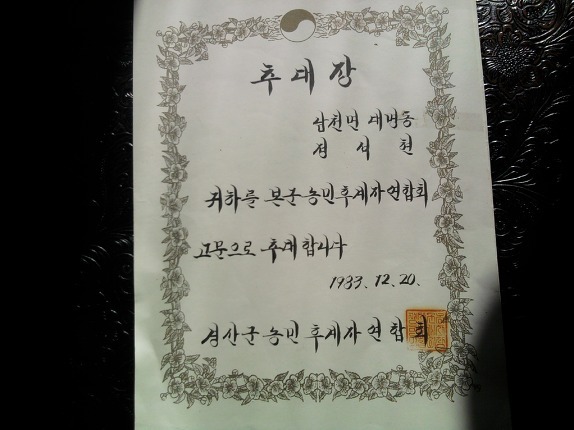 추대장
남천면 대명동
정석천
귀하를 본군 농민후계자연합회
고문으로 추대합니다
1933. 12. 20.
경산군 농민후계자연합회